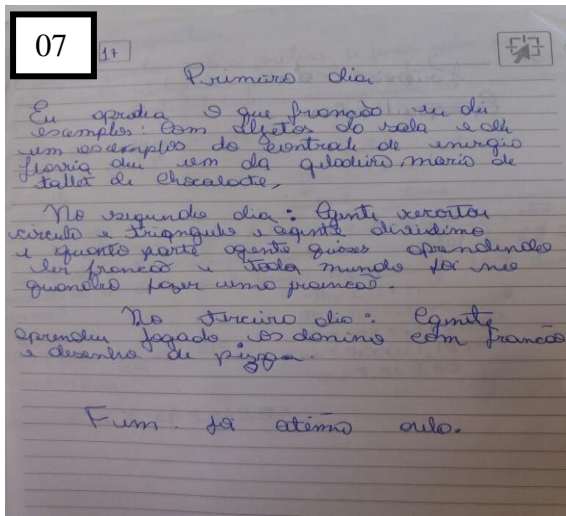 07
17
Primeiro dia
Eu aprodia o que françõo eu dei
escemplos: Com objetos da sala e deli
um escemplos do controle de energio
flavia deu um da geladeira, maria de
tallet de chocalate,
No segundo dia: Egente recortou
circulo e triangulo e agente dividimo
e quanto parte agente quises aprendendo
ler francoõ e toda mundo foi no
quandro fazer uma francoõ.
No terceiro dia: Egente
aprendeu jogado os domino com francõo
e desenho de pizza.
Fim. foi otémo aula.